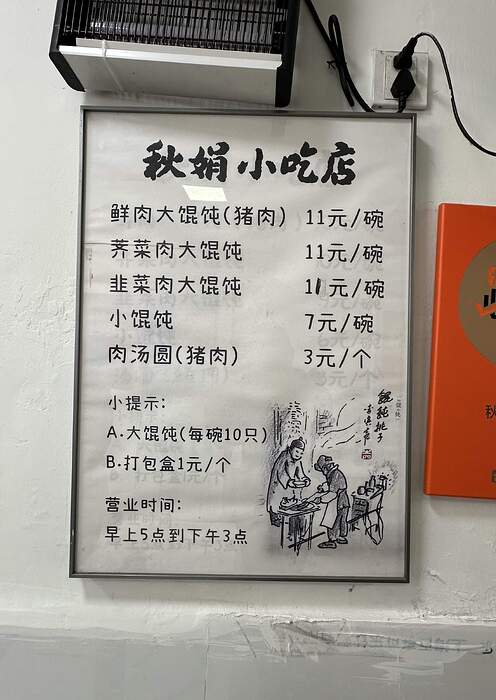 秋娟小吃店
鲜肉大馄饨(猪肉) 11元/碗
荠菜肉大馄饨 11元/碗
韭菜肉大馄饨 11元/碗
小馄饨 7元/碗
肉汤圆(猪肉) 3元/个
小提示:
A.大馄饨(每碗10只)
B.打包盒1元/个
营业时间:
早上5点到下午3点
馄饨挑子